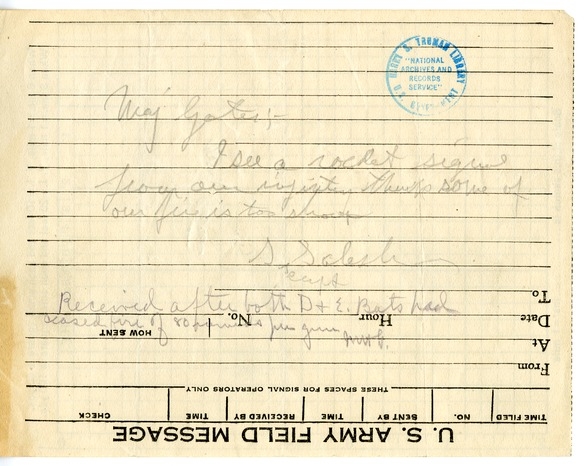 HARRY S. TRUMAN LIBRARY
"NATIONAL
ARCHIVES AND
RECORDS
SERVICE"
Maj Gates;-
I see a rocket signal
from our infantry thinks some of
our fire is too short
S. Salesk
Capt
Received after both D + E. Bats had
ceased fire of 80 rounds per gun
To
Date
Hour
No.
HOW SENT
At
From
THESE SPACES FOR SIGNAL OPERATORS ONLY
TIME FILED
NO.
SENT BY
TIME
RECEIVED BY
TIME
CHECK
U. S. ARMY FIELD MESSAGE